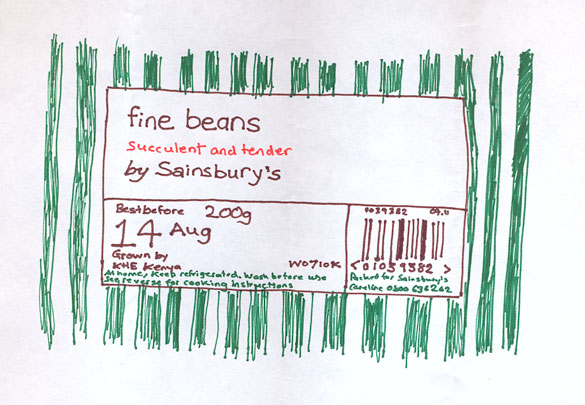 fine beans
succulent and tender
by Sainsbury's
Best before 200g
14 Aug
Grown by
KHE Kenya
W0710K
At home, keep refrigerated, wash before use
See reverse for cooking instructions
0039382
< 01039382 >
Packed for Sainsbury's
Careline 0800 636262